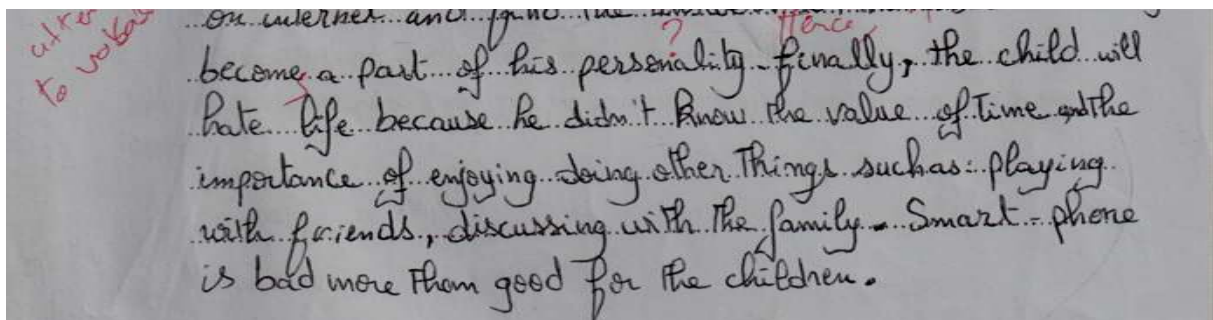 on internet and find the
? Hence
become a part of his personality. finally, the child will
hate life because he didn't know the value of time and the
importance of enjoying doing other things such as: playing
with friends, discussing with the family. Smart-phone
is bad more than good for the children.
to